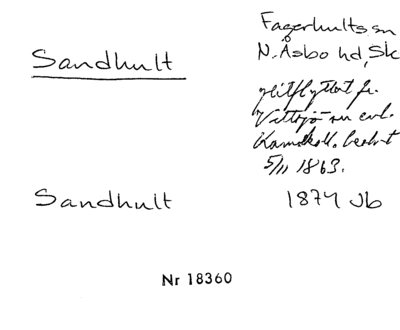 Sandhult
Fagerhults sn
N. Åsbo hd, Sk
ditflyttat fr.
Vittsjö sn enl.
Kamkoll. beslut
5/11 1863.
Sandhult
1874 Jb
Nr 18360